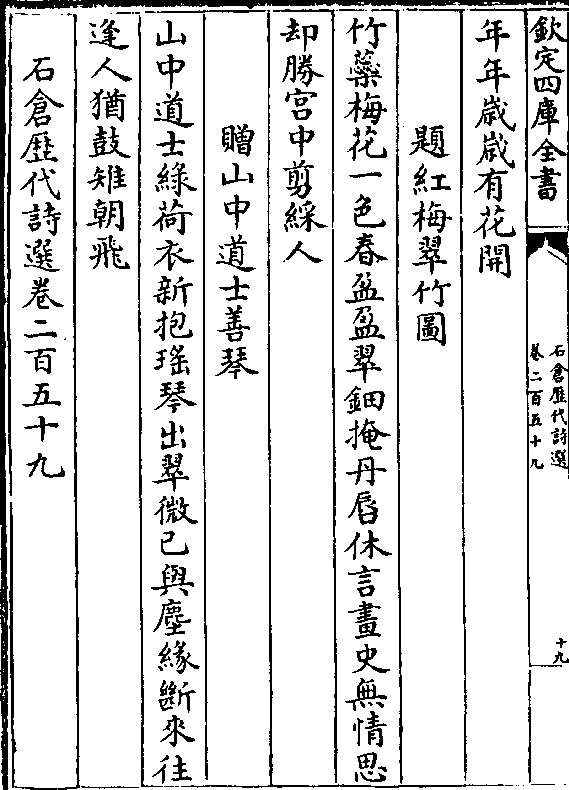 欽定四庫全書
石倉歴代詩選
卷二百五十九
十九
年年歲歲有花開
題紅梅翠竹圖
竹藥梅花一色春盈盈翠鈿掩丹唇休言畫史無情思
却勝宮中剪綵人
贈山中道士善琴
山中道士綠荷衣新抱瑤琴出翠微已與塵緣斷來往
逢人猶鼓雉朝飛
石倉歴代詩選卷二百五十九